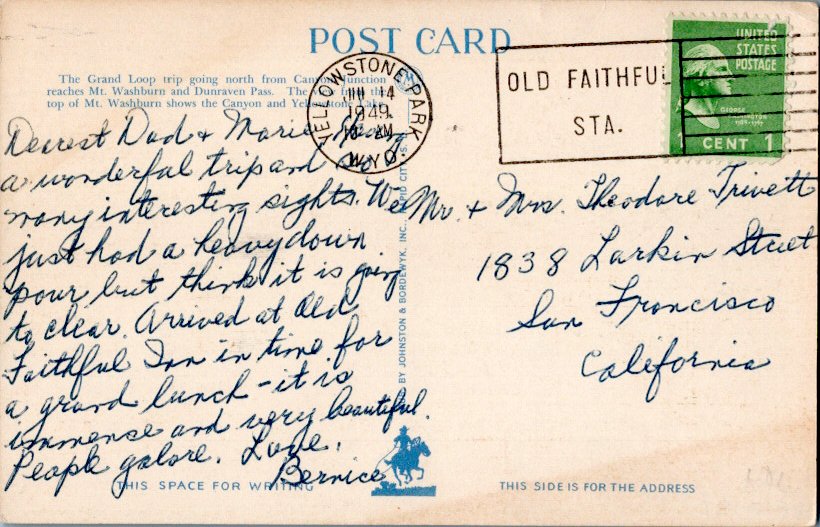 POST CARD
The Grand Loop trip going north from Canyon Junction
reaches Mt. Washburn and Dunraven Pass. The from the
top of Mt. Washburn shows the Canyon and Yellowstone Lake.
YELLOWSTONE PARK
14
1949
AM
WYO.
OLD FAITHFUL
STA.
UNITED
STATES
POSTAGE
GEORGE
WASHINGTON
CENT 1
Dearest Dad & Marie,
a wonderful trip and
many interesting sights. We
just had a heavy down
pour but think it is going
to clear. Arrived at Old
Faithful Inn in time for
a grand lunch - it is
immense and very beautiful.
People galore. Love,
Bernice
BY JOHNSTON & BORDEWYK, INC., RAPID CITY, S.
Mr. & Mrs. Theodore Trivett
1838 Larkin Street
San Francisco
California
THIS SPACE FOR WRITING
THIS SIDE IS FOR THE ADDRESS